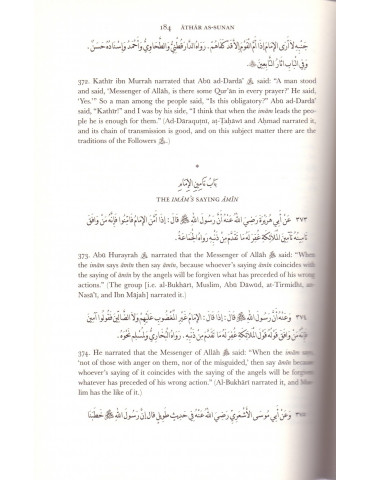 184 ĀTHĀR AS-SUNAN
جَنْبِهِ لَا أَرَى الْإِمَامَ إِذَا أَمَّ الْقَوْمَ إِلَّا قَدْ كَفَاهُمْ. رَوَاهُ الدَّارَقُطْنِيُّ وَالطَّحَاوِيُّ وَأَحْمَدُ وَإِسْنَادُهُ حَسَنٌ.
وَفِي الْبَابِ آثَارُ التَّابِعِينَ
372. Kathīr ibn Murrah narrated that Abū ad-Dardā’ said: “A man stood
and said, ‘Messenger of Allāh, is there some Qur’ān in every prayer?’ He said,
‘Yes.’” So a man among the people said, “Is this obligatory?” Abū ad-Dardā’
said, “Kathīr!” and I was by his side, “I think that when the imām leads the peo-
ple he is enough for them.” (Ad-Dāraquṭnī, aṭ-Ṭaḥāwī and Aḥmad narrated it,
and its chain of transmission is good, and on this subject matter there are the
traditions of the Followers).
*
بَابُ تَأْمِينِ الْإِمَامِ
THE IMĀM’S SAYING ĀMĪN
٣٧٣ عَنْ أَبِي هُرَيْرَةَ رَضِيَ اللَّهُ عَنْهُ أَنَّ رَسُولَ اللَّهِ ﷺ قَالَ: إِذَا أَمَّنَ الْإِمَامُ فَأَمِّنُوا فَإِنَّهُ مَنْ وَافَقَ
تَأْمِينُهُ تَأْمِينَ الْمَلَائِكَةِ غُفِرَ لَهُ مَا تَقَدَّمَ مِنْ ذَنْبِهِ. رَوَاهُ الْجَمَاعَةُ.
373. Abū Hurayrah narrated that the Messenger of Allāh said: “When
the imām says āmīn then say āmīn, because whoever’s saying āmīn coincides with
the saying of āmīn by the angels will be forgiven what has preceded of his wrong
actions.” (The group [i.e. al-Bukhārī, Muslim, Abū Dāwūd, at-Tirmidhī, an-
Nasā’ī, and Ibn Mājah] narrated it.)
٣٧٤ وَعَنْهُ أَنَّ رَسُولَ اللَّهِ ﷺ قَالَ: إِذَا قَالَ: الْإِمَامُ غَيْرِ الْمَغْضُوبِ عَلَيْهِمْ وَلَا الضَّالِّينَ فَقُولُوا آمِينَ
فَإِنَّهُ مَنْ وَافَقَ قَوْلُهُ قَوْلَ الْمَلَائِكَةِ غُفِرَ لَهُ مَا تَقَدَّمَ مِنْ ذَنْبِهِ. رَوَاهُ الْبُخَارِيُّ وَلِمُسْلِمٍ نَحْوُهُ.
374. He narrated that the Messenger of Allāh said: “When the imām says,
‘not of those with anger on them, nor of the misguided,’ then say āmīn because
whoever’s saying of it coincides with the saying of the angels will be forgiven
whatever has preceded of his wrong action.” (Al-Bukhārī narrated it, and Mus-
lim has the like of it.)
وَعَنْ أَبِي مُوسَى الْأَشْعَرِيِّ رَضِيَ اللَّهُ عَنْهُ فِي حَدِيثٍ طَوِيلٍ قَالَ إِنَّ رَسُولَ اللَّهِ ﷺ خَطَبَنَا